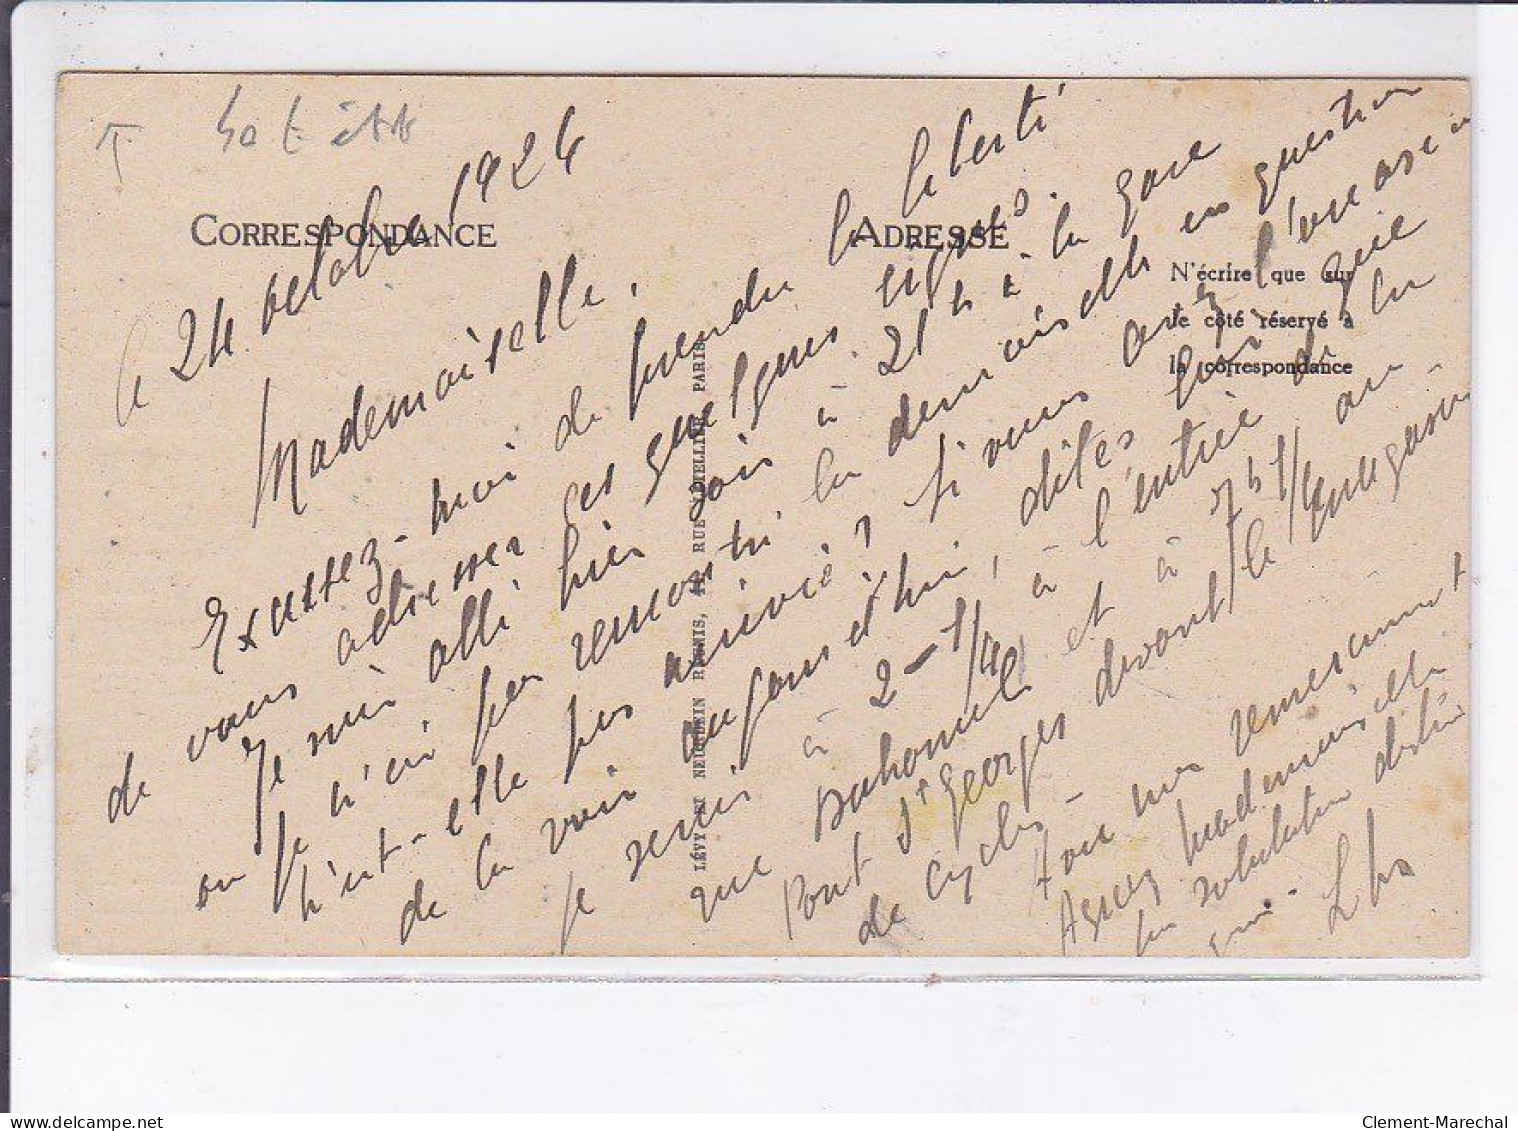 CORRESPONDANCE
ADRESSE
N'écrire que sur
le côté réservé à
la correspondance
LÉVY ET NEURDEIN RÉUNIS, RUE LETELLIER, PARIS
24 octobre 1924
Mademoiselle,
Excusez-moi de prendre la liberté
de vous adresser ces quelques lignes.
Je suis allé hier soir à 21h à la gare
où je n'ai pas rencontré la demoiselle en question
n'est-elle pas arrivée? si vous avez l'occasion
de la voir aujourd'hui, dites lui que
je serai à 2-1/4 à l'entrée de la
rue et à 7h1/4 au
Pont St Georges devant le magasin
de cycles -
Avec mes remerciements
Agréez Mademoiselle
Clement-Marechal